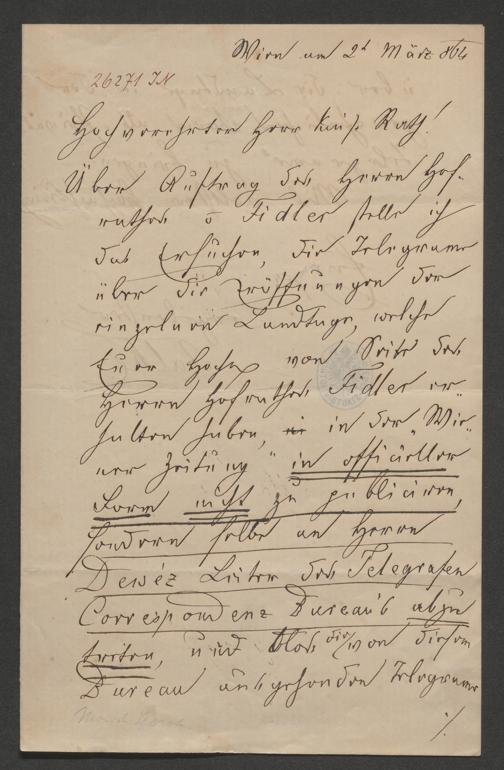 Wien am 2t März 864
26271 IN
Hochverehrter Herr kais. Rath!
Über Auftrag des Herrn Hof-
rathes v Fidler stelle ich
das Ersuchen, die Telegramme
über die Eröffnungen der
einzelnen Landtage, welche
Euer Hoch von Seite des
Herrn Hofrathes Fidler er-
halten haben, in der „Wie-
ner Zeitung" in officieller
Form nicht zu publiciren,
sondern selbe an Herrn
Dewéz Leiter des Telegrafen
Correspondenz Bureau's abzu
treten, und blos die von diesem
Bureau ausgehenden Telegramme
./.